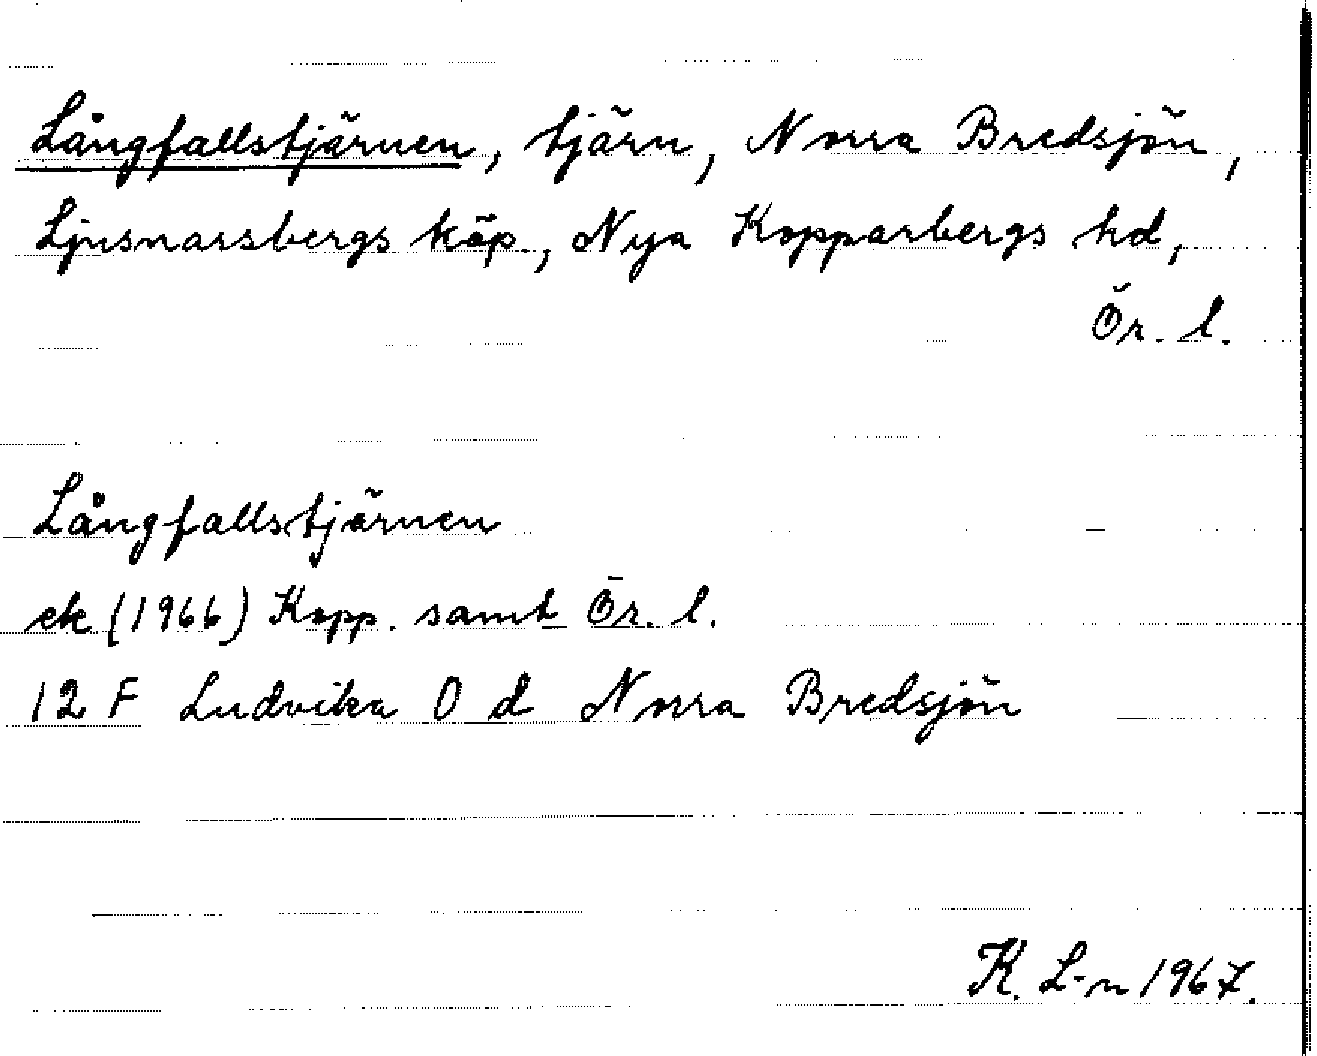 Långfallstjärnen, tjärn, Norra Bredsjön,
Ljusnarsbergs köp, Nya Kopparbergs hd,
Ör. l.
Långfallstjärnen
ek (1966) Kopp. samt Ör. l.
12 F Ludvika 0 d Norra Bredsjön
K. L-n 1967.